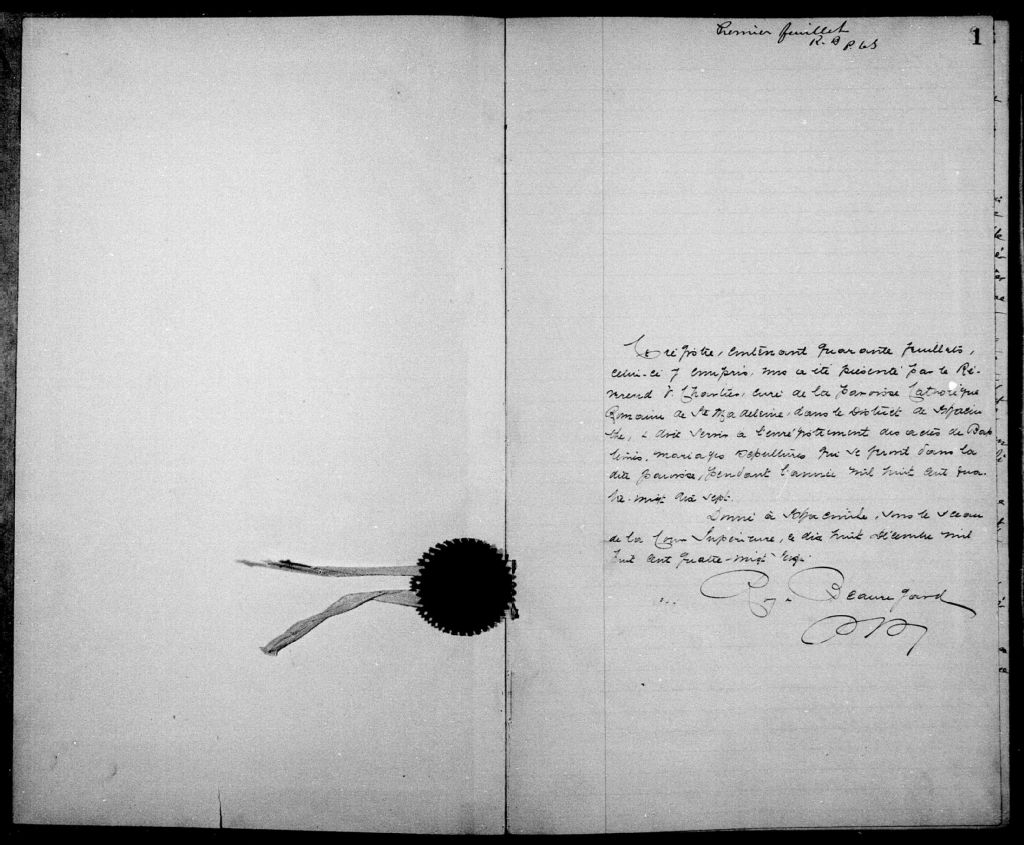 Premier feuillet
R. B P. C S
1
Ce régistre, contenant quarante feuillets,
celui-ci y compris, nous a été présenté par le Ré-
vérend V. Chartier, curé de la paroisse Catholique
Romaine de Ste Madeleine, dans le District de St Hyacin
the, & doit servir à l'enrégistrement des actes de Bap
têmes, mariages Sépultures qui se feront dans la
dite paroisse, pendant l'année mil huit cent qua-
tre-vingt dix sept.
Donné à St Hyacinthe, sous le sceau
de la Cour Supérieure, ce dix huit Décembre mil
huit cent quatre-vingt
Roy & Beauregard
P C S